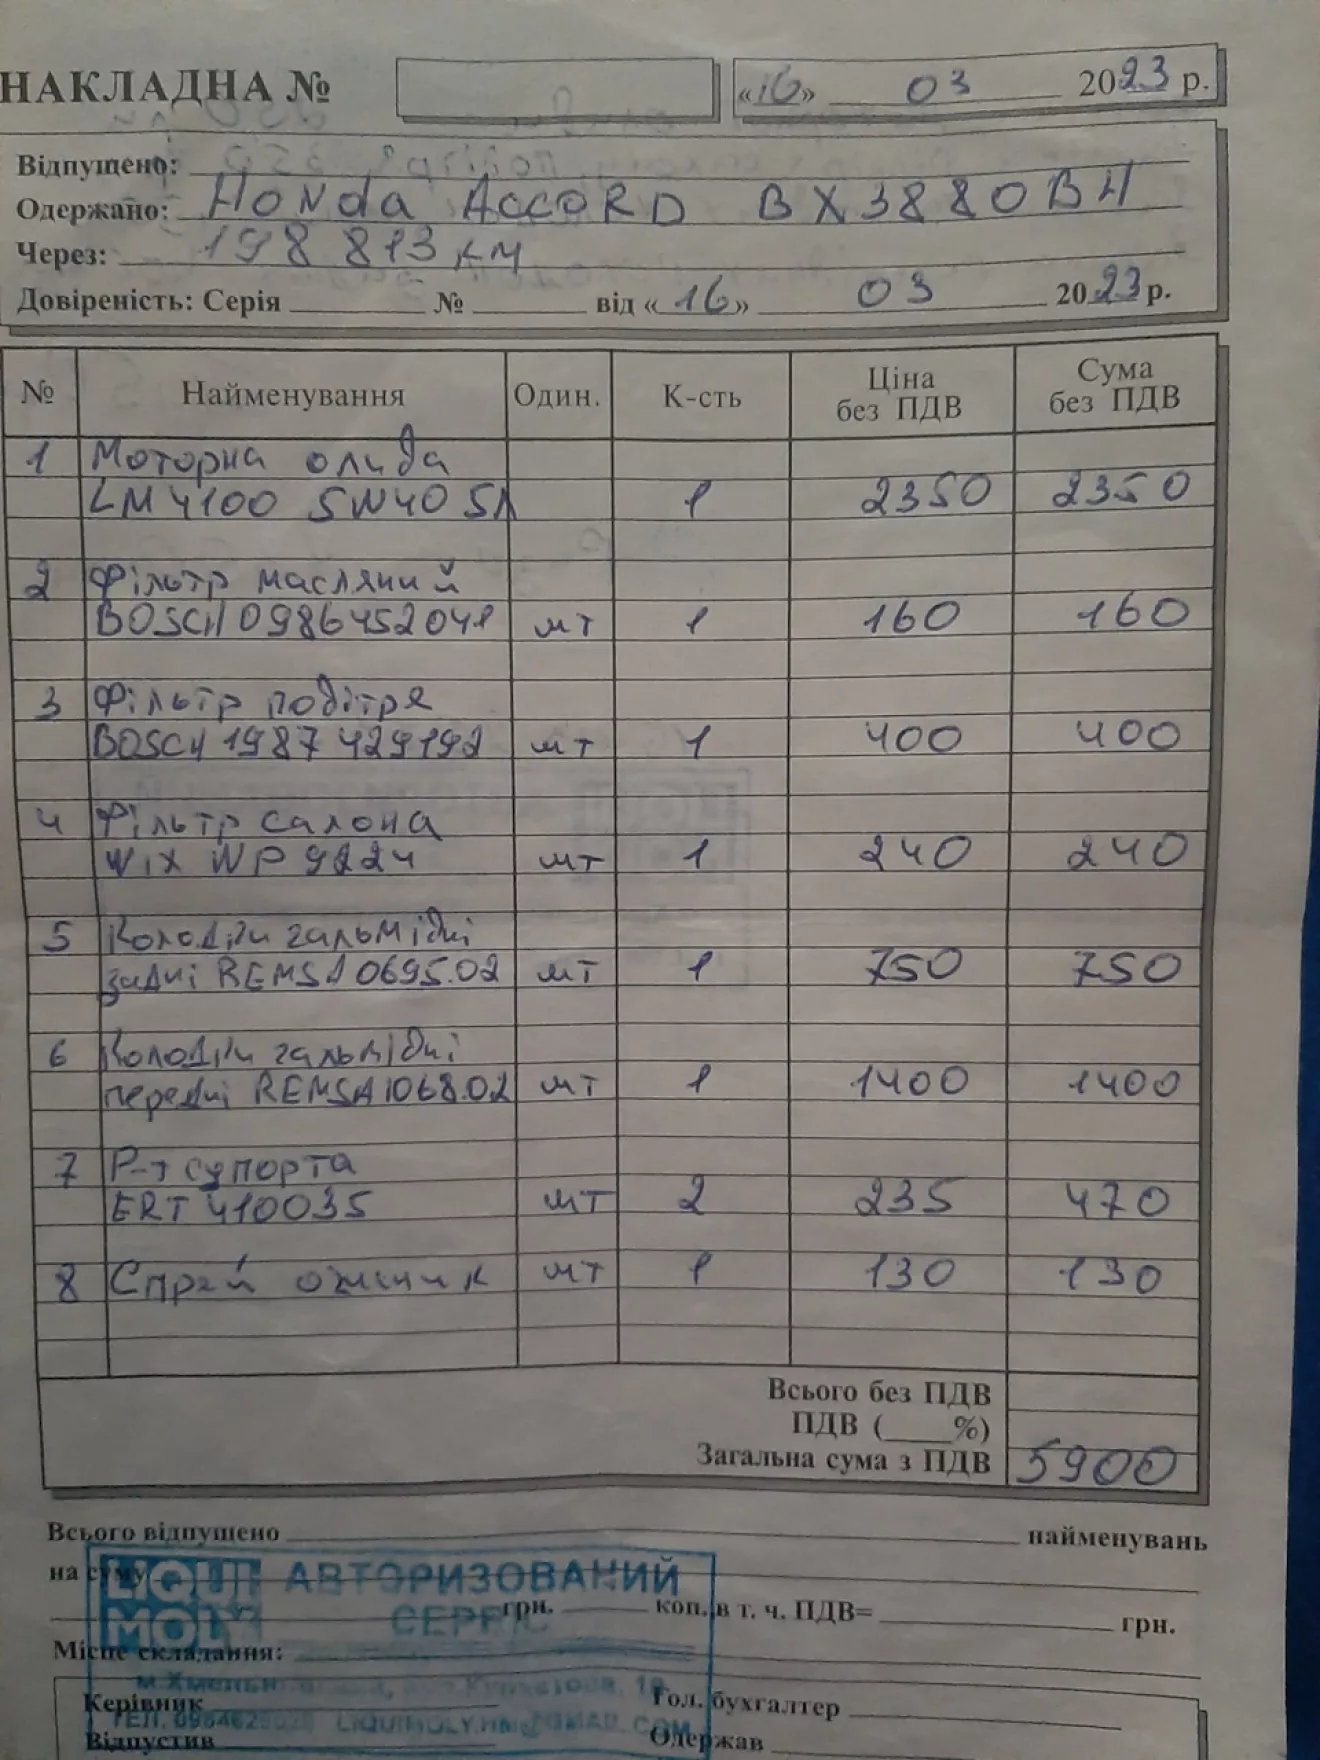 НАКЛАДНА №
«16» 03 2023 р.
Відпущено:
Одержано: Honda ACCORD BX3880BH
Через: 198 813 км
Довіреність: Серія № від «16» 03 2023 р.
№ Найменування Один. К-сть Ціна без ПДВ Сума без ПДВ
1 Моторна олива
LM 4100 5W40 5л 1 2350 2350
2 Фільтр масляний
BOSCH 0986452041 шт 1 160 160
3 Фільтр повітря
BOSCH 1987429192 шт 1 400 400
4 Фільтр салона
WIX WP9224 шт 1 240 240
5 Колодки гальмівні
задні REMSA 0695.02 шт 1 750 750
6 Колодки гальмівні
передні REMSA 1068.02 шт 1 1400 1400
7 Р-т супорта
ERT 410035 шт 2 235 470
8 Спрей очисник шт 1 130 130
Всього без ПДВ
ПДВ (____%)
Загальна сума з ПДВ 5900
Всього відпущено найменувань
на суму
LIQUI MOLY АВТОРИЗОВАНИЙ СЕРВІС
грн. коп. в т. ч. ПДВ= грн.
Місце складання:
Керівник Гол. бухгалтер
ТЕЛ. LIQUIMOLY.HM@GMAIL.COM
Відпустив Одержав